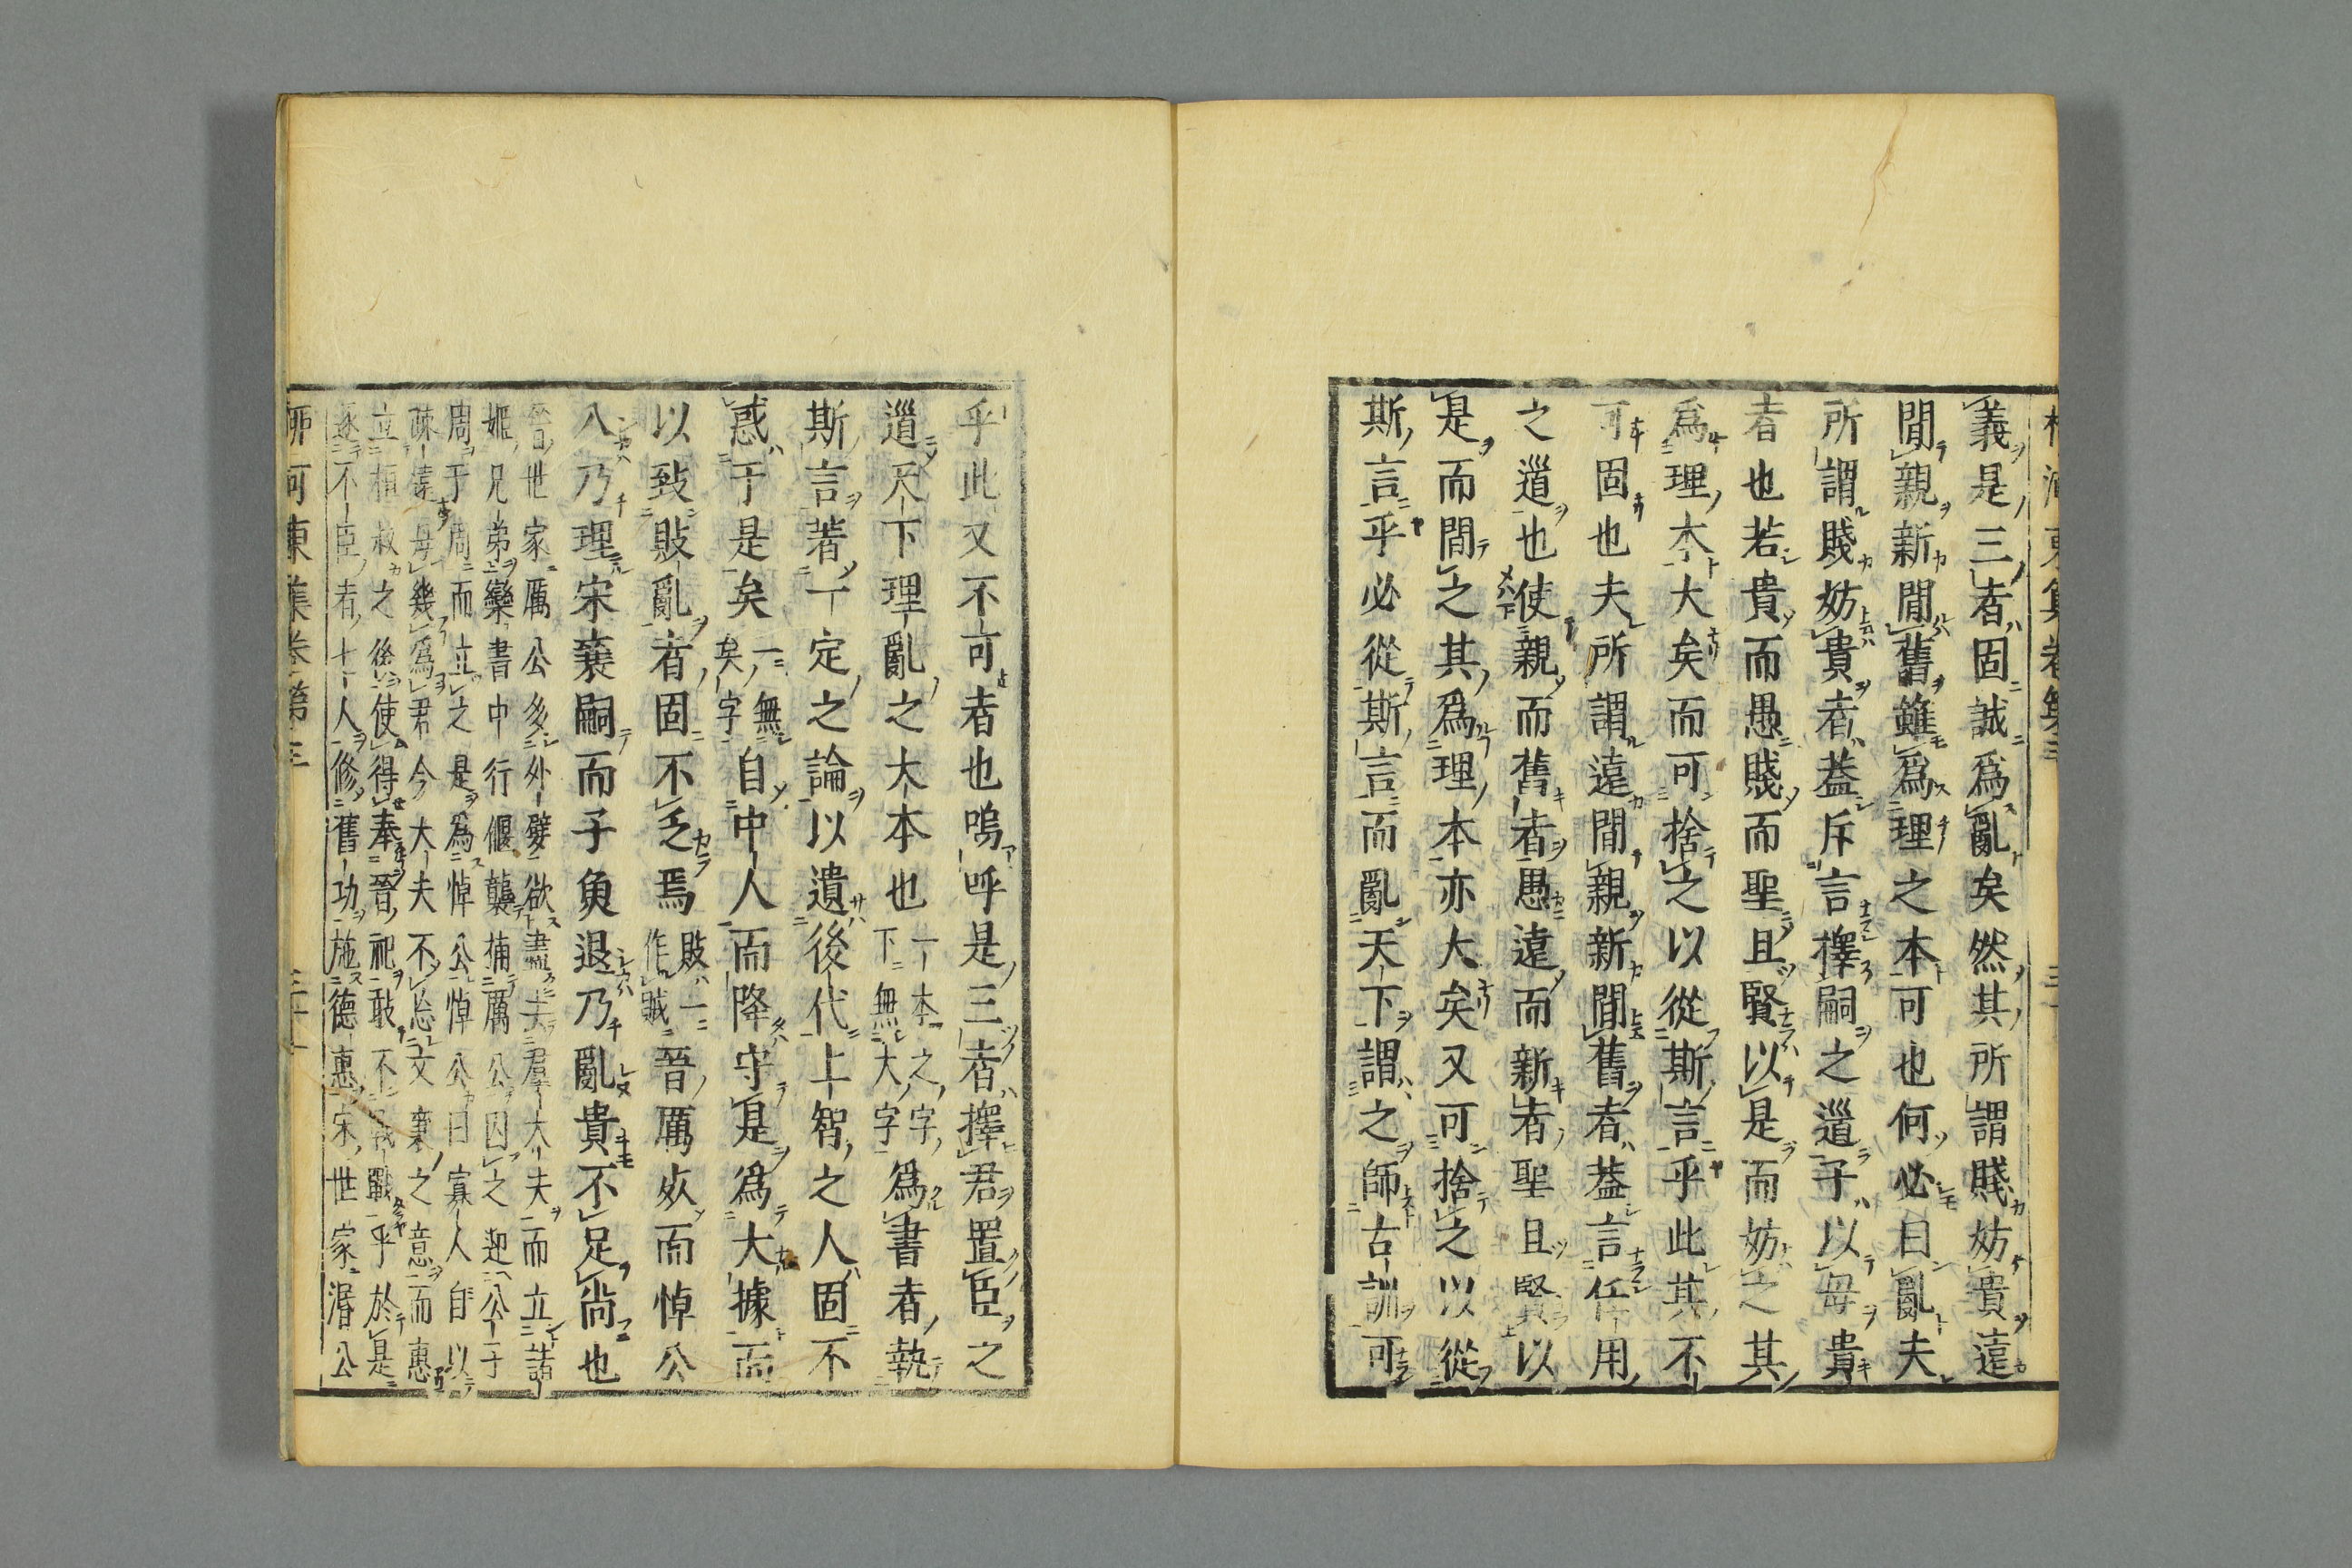 柳河東集卷第三
義是三者固誠爲亂矣然其所謂賤妨貴遠
間親新間舊雖爲理之本可也何必曰亂夫
所謂賤妨貴者葢斥言擇嗣之道子以母貴
者也若貴而愚賤而聖且賢以是而妨之其
爲理本大矣而可捨之以從斯言乎此其不
可固也夫所謂遠間親新間舊者葢言任用
之道也使親而舊者愚遠而新者聖且賢以
是而間之其爲理本亦大矣又可捨之以從
斯言乎必從斯言而亂天下謂之師古訓可
乎此又不可者也嗚呼是三者擇君置臣之
道天下理亂之大本也一本之字下無大字爲書者執
斯言著一定之論以遺後代上智之人固不
惑于是矣一無矣字自中人而降守是爲大據而
以致敗亂者固不乏焉敗一作賊晉厲死而悼公
入乃理宋襄嗣而子魚退乃亂貴不足尚也
晉世家厲公多外嬖欲盡去羣大夫而立諸
姬兄弟欒書中行偃襲捕厲公囚之迎公子
周于周而立之是爲悼公悼公曰寡人自以
疎遠毋幾爲君今大夫不忘文襄之意而惠
立桓叔之後使得奉晉祀敢不戰戰乎於是
逐不臣者七人修舊功施德惠宋世家湣公
柳河東集卷第三 三十一